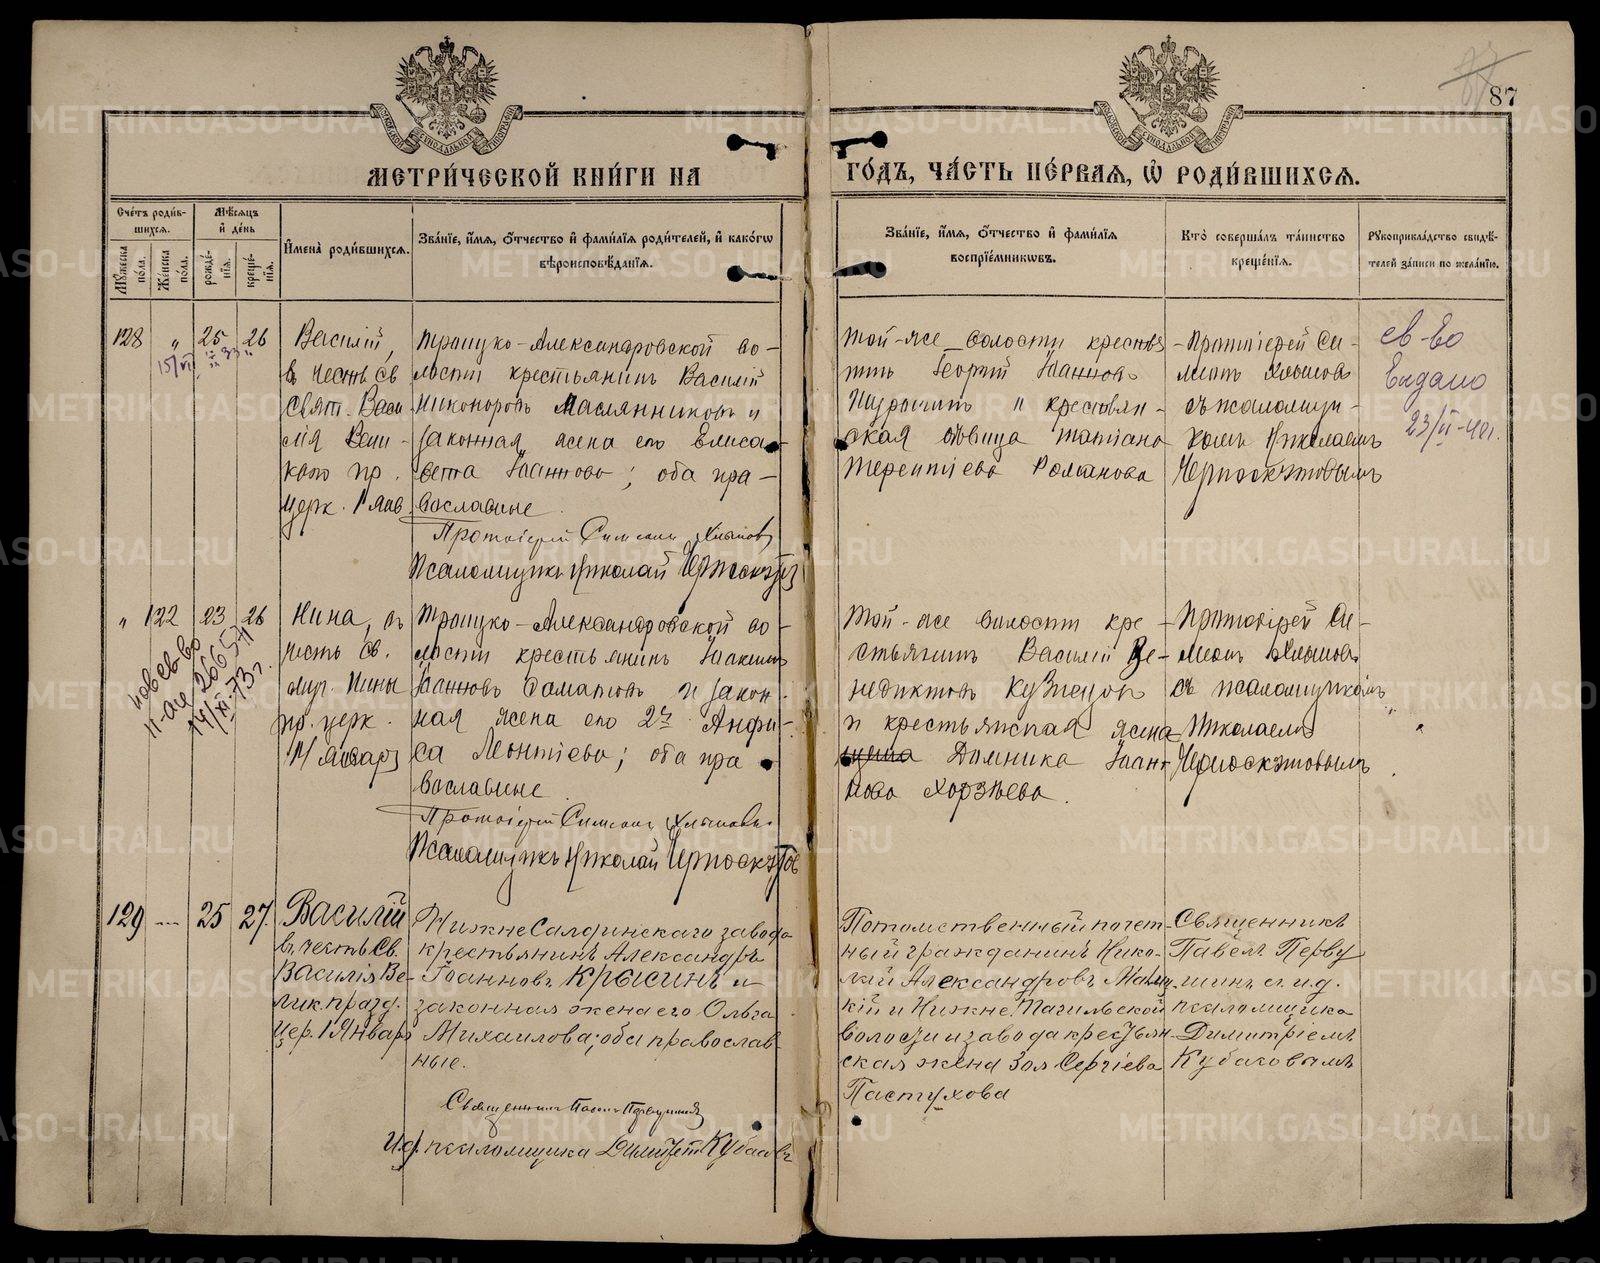 87
МЕТРИ́ЧЕСКОЙ КНИ́ГИ НА ГО́ДЪ, ЧА́СТЬ ПЕ́РВАЯ, Ѽ РОДИ́ВШИХСЯ.
Сче́тъ роди́в-
шихся.
Му́жеска по́ла.
Же́нска по́ла.
Мѣ́сяцъ и҆ де́нь
рожде́-
нїя.
креще́-
нїя.
И҆мена̀ роди́вшихся.
Зва́нїе, и҆́мя, ѻ҆́тчество и҆ фами́лїя роди́телей, и҆ како́гѡ
вѣроисповѣ́данїя.
Зва́нїе, и҆́мя, ѻ҆́тчество и҆ фами́лїя
воспрїе́мникѡвъ.
Кто̀ соверша́лъ та́инство
креще́нїя.
Рꙋкоприкла́дство свидѣ́-
телей за́писи по жела́нїю.
128 „ 25 26
15/VII
Василій,
въ честь Св
Свят. Васи
лія Вели-
каго пр.
церк. 1 янв.
Троицко-Александровской во-
лости крестьянинъ Василій
Никоноровъ Маслянниковъ и
законная жена его Елиса-
вета Іаннова; оба пра-
вославные
Протоіерей Симеонъ Хлыновъ
Псаломщикъ Николай Черноскутовъ
той-же волости крестья-
нинъ Георгій Іанновъ
и крестьян-
ская дѣвица Татіана
Терентіева Романова
Протоіерей Си-
меонъ Хлыновъ
съ псаломщи-
комъ Николаемъ
Черноскутовымъ
св-во
выдано
23/II-40г.
„ 122 23 26
пов св-во
II-АИ 266571
14/XI-73 г.
Нина, въ
честь св.
муч. Нины
пр. церк.
14 январ
Троицко-Александровской во-
лости крестьянинъ Іакимъ
Іанновъ и закон-
ная жена его 2й Анфи-
са Леонтіева; оба пра
вославные
Протоіерей Симеонъ Хлыновъ
Псаломщикъ Николай Черноскутов
Той-же волости кре-
стьянинъ Василій Ве-
недиктовъ Кузнецов
и крестьянская жена
Домника Іанн-
нова Хорзѣева.
Протоіерей Си-
меонъ Хлыновъ
съ псаломщикомъ
Николаемъ
Черноскутовымъ
129 — 25 27.
Василій
въ честь Св.
Василія Ве-
лик. празд.
цер. 1 Январ
НижнеСалдинскаго завода
крестьянинъ Александръ
Іоанновъ Крысинъ и
законная жена его Ольга
Михаилова; оба православ-
ные.
Священникъ Павелъ Первушинъ
И.д. псаломщика Димитрій Кубасовъ
Потомственный почет-
ный гражданинъ Нико-
лай Александровъ
кій и Нижне Тагильской
волости и завода крестьян-
ская жена Зоя Сергіева
Пастухова
Священникъ
Павелъ Перву
шинъ съ и.д.
псаломщика
Димитріемъ
Кубасовымъ
METRIKI.GASO-URAL.RU